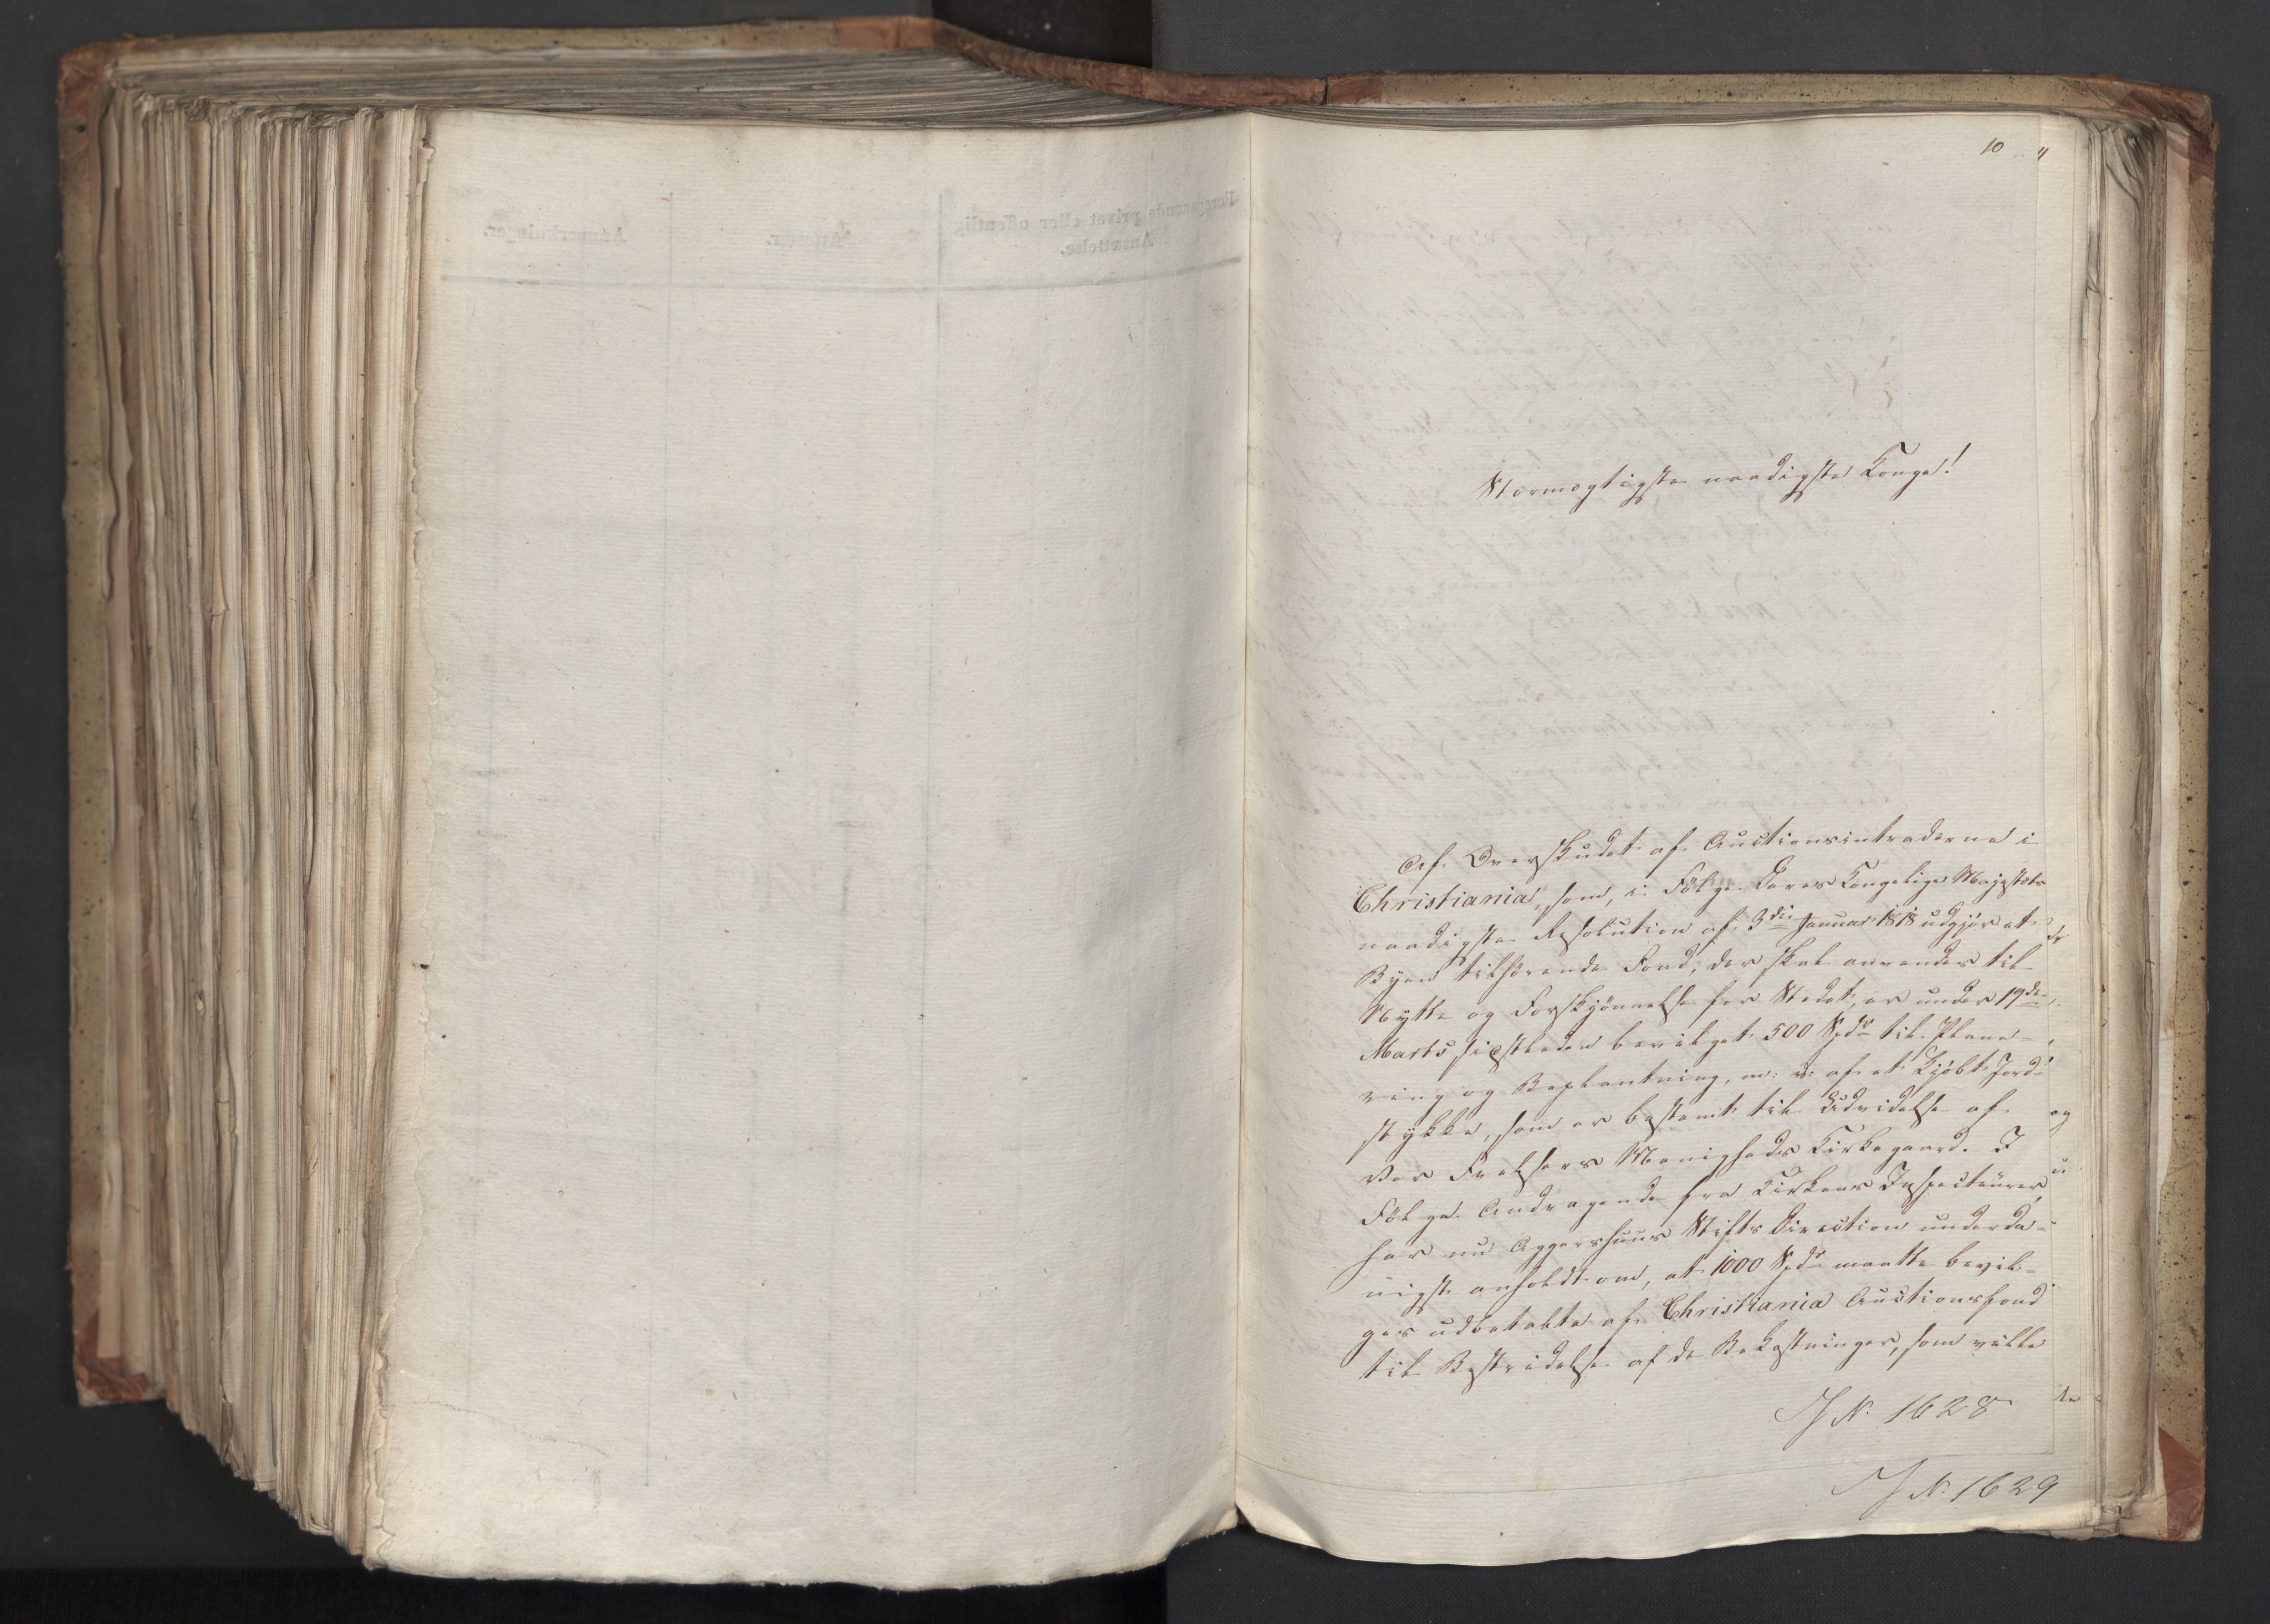 10
11
Stormægtigste naadigste Konge!
Af Overskudet af Auctionsintraderne i
Christiania, som, i Følge Deres Kongelige Majestæts
naadigste Resolution af 3die Januar 1818 udgjør et
Byen tilhørende Fond, der skal anvendes til
Nytte og Forskjønnelse for Stedet, er under 19de
Marts sidstleden bevilget 500 Spdr til Plane-
ring og Beplantning, m: v: af et kjøbt Jord-
stykke, som er bestemt til Udvidelse af
Vor Frelsers Menigheds Kirkegaard. I
Følge Andragende fra Kirkens Inspecteurer,
har nu Aggershuus Stifts Direction underda-
nigst anholdt om, at 1000 Spdr maatte bevil-
ges udbetalte af Christiania Auctionsfond
til Bestridelse af de Bekostninger, som ville
J N. 1628
J N. 1629
Foregaaende privat eller offentlig
Ansættelse.
Attester.
Anmærkninger.